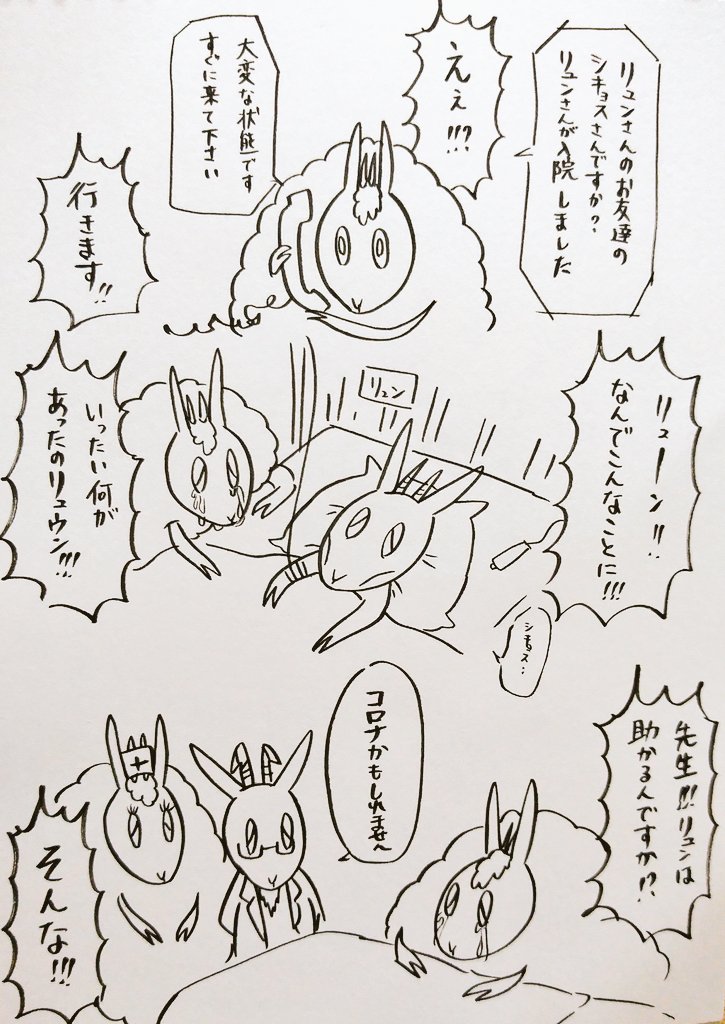 リュンさんのお友達の
シキョスさんですか？
リュンさんが入院しました
えぇ!!!
大変な状態です
すぐに来て下さい
行きます!!
リューン!!
なんでこんなことに!!!
リュン
いったい何が
あったのリュウン!!!
シキョス…
先生!!!リュンは
助かるんですか!?
コロナかもしれません
そんな!!!